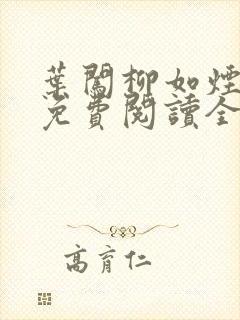 葉闖柳如煙
免費閱讀全
高育仁